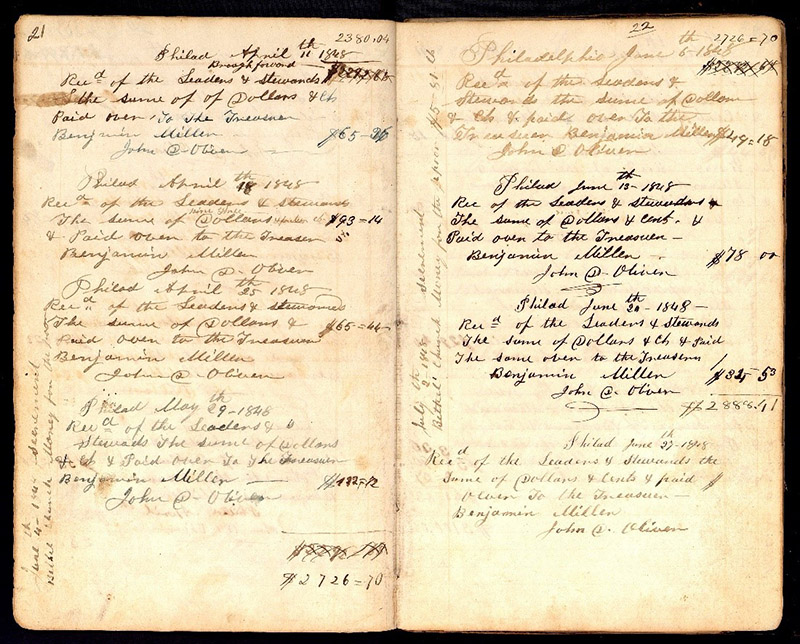 21
2380.04
Philad April 11th 1848
Brough forward
Recd of the Leaders & Stewards
& the sume of of Dollars & Ch
Paid over To The Treasuer
Benjamin Miller $65-26
John C. Oliver
Philad April 18th 1848
Recd of the Leaders & Stewards
The sume of Dollars $93=14
& Paid over to the Treasuer
Benjamin Miller
John C. Oliver
Philad April 25th 1848
Recd of the Leaders & Stewards
The sume of Dollars & $65=44
Paid over to the Treasuer
Benjamin Miller
John C. Oliver
Philad May 29th-1848
Recd of the Leaders &
Stewads The sume of Dollars
& Ch & Paid over To The Treasuer
Benjamin Miller $122=12
John C. Oliver
$2726=70
June 4th-1848 Secrement
Bethel Church Money for the poor
22
2726=70
Philadelphia June 6th-1848
Recd of the Leaders &
Stewards the sume of Dollars
& Ch & paid over To the
Treasuer Benjamin Miller $49=18
John C. Oliver
Philad June 13th-1848
Rec of the Leaders & Stewardes &
The sume of Dollars & Cent. &
Paid over to the Treasuer-
Benjamin Miller $78 00
John C. Oliver
Philad June 20th-1848-
Recd of the Leaders & Stewards
The sume of Dollars & Ch & Paid
The same over to the Treasurer
Benjamin Miller $34-53
John C. Oliver
$2888.41
Philad June 27th-1848
Recd of the Leaders & Stewards the
Sume of Dollars & Cents & paid $
over To the Treasuer-
Benjamin Miller
John C. Oliver
July 2th 1848 Secrement
Bethel Church Money for the poor